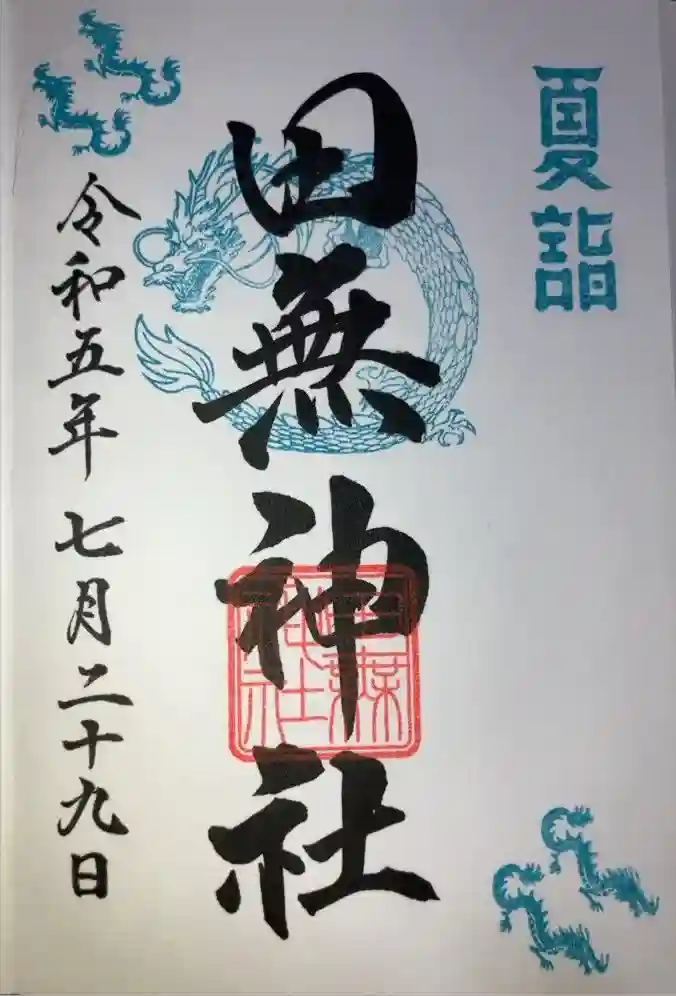 夏詣
田無神社
令和五年七月二十九日